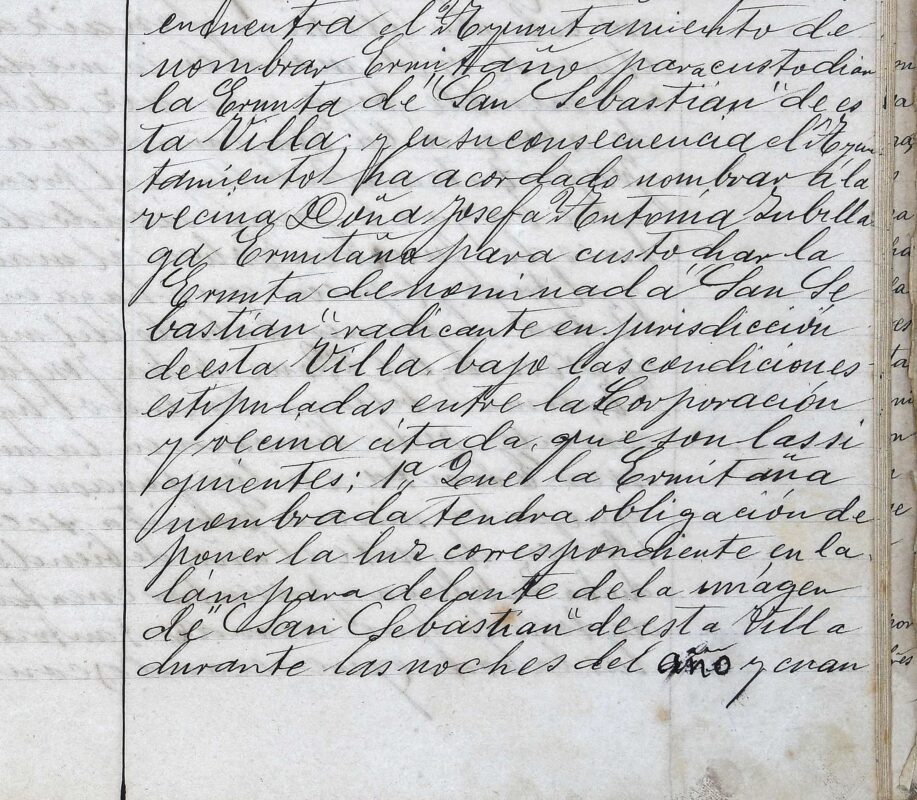 encuentra el Ayuntamiento de
nombrar Ermitaño para custodiar
la Ermita de "San Sebastián" de es
ta Villa; y en su consecuencia el Ayun-
tamiento ha acordado nombrar á la
vecina Doña Josefa Antonia Zubilla-
ga Ermitaña para custodiar la
Ermita denominada "San Se
bastián" radicante en jurisdicción
de esta Villa bajo las condiciones
estipuladas entre la Corporación
y vecina citada, que son las si
guientes; 1ª Que la Ermitaña
nombrada tendra obligación de
poner la luz correspondiente en la
lámpara delante de la imágen
de "San Sebastian" de esta Villa
durante las noches del año y cuan